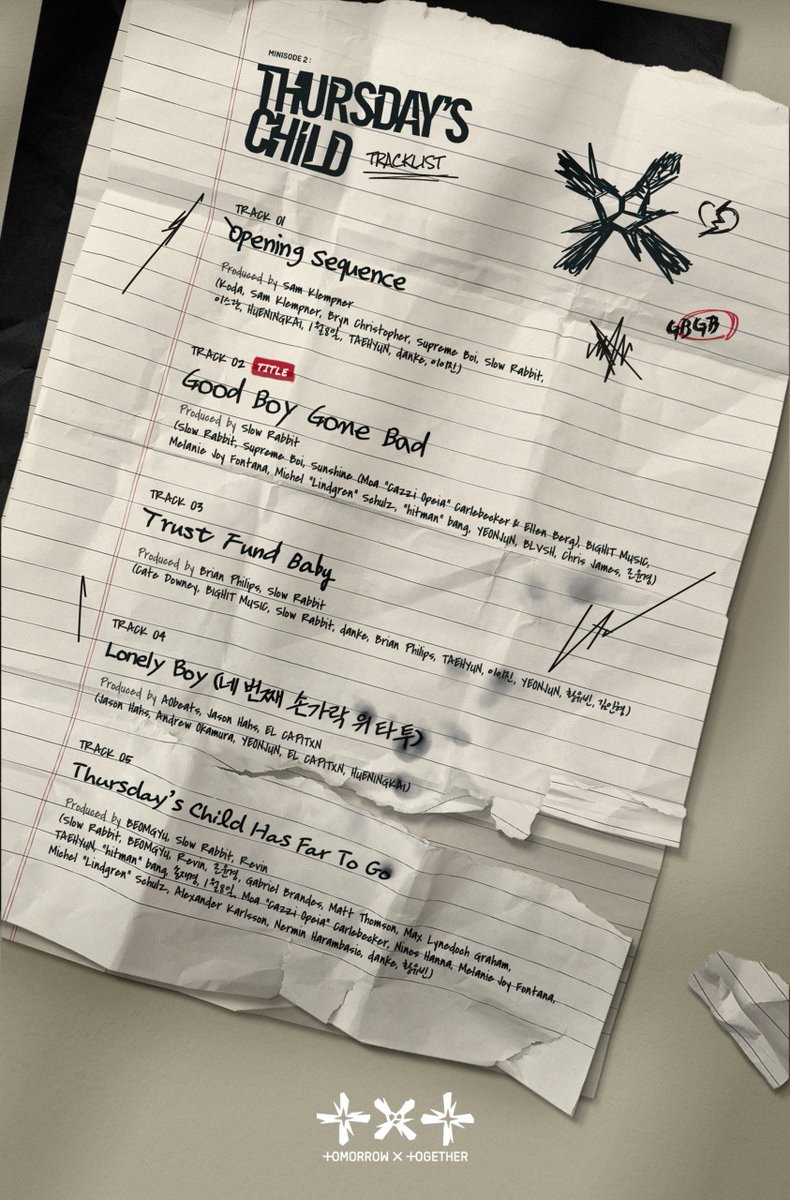 MINISODE 2 :
THURSDAY'S
CHILD
TRACKLIST
GBGB
TRACK 01
Opening Sequence
Produced by Sam Klempner
(Koda, Sam Klempner, Bryn Christopher, Supreme Boi, Slow Rabbit,
이스란, HUENINGKAI, 1월8일, TAEHYUN, danke, 이이진)
TRACK 02 TITLE
Good Boy Gone Bad
Produced by Slow Rabbit
(Slow Rabbit, Supreme Boi, Sunshine (Moa "Cazzi Opeia" Carlebecker & Ellen Berg), BIGHIT MUSIC,
Melanie Joy Fontana, Michel "Lindgren" Schulz, "hitman" bang, YEONJUN, BLVSH, Chris James, 은윤경)
TRACK 03
Trust Fund Baby
Produced by Brian Philips, Slow Rabbit
(Cate Downey, BIGHIT MUSIC, Slow Rabbit, danke, Brian Philips, TAEHYUN, 이이진, YEONJUN, 황유빈, 김인형)
TRACK 04
Lonely Boy (네 번째 손가락 위 타투)
Produced by AObeats, Jason Hahs, EL CAPITXN
(Jason Hahs, Andrew Okamura, YEONJUN, EL CAPITXN, HUENINGKAI)
TRACK 05
Thursday's Child Has Far To Go
Produced by BEOMGYU, Slow Rabbit, Revin
(Slow Rabbit, BEOMGYU, Revin, 은윤경, Gabriel Brandes, Matt Thomson, Max Lynedoch Graham,
TAEHYUN, "hitman" bang, 1월8일, Moa "Cazzi Opeia" Carlebecker, Ninos Hanna, Melanie Joy Fontana,
Michel "Lindgren" Schulz, Alexander Karlsson, Nermin Harambasic, danke, 황유빈)
TOMORROW X TOGETHER